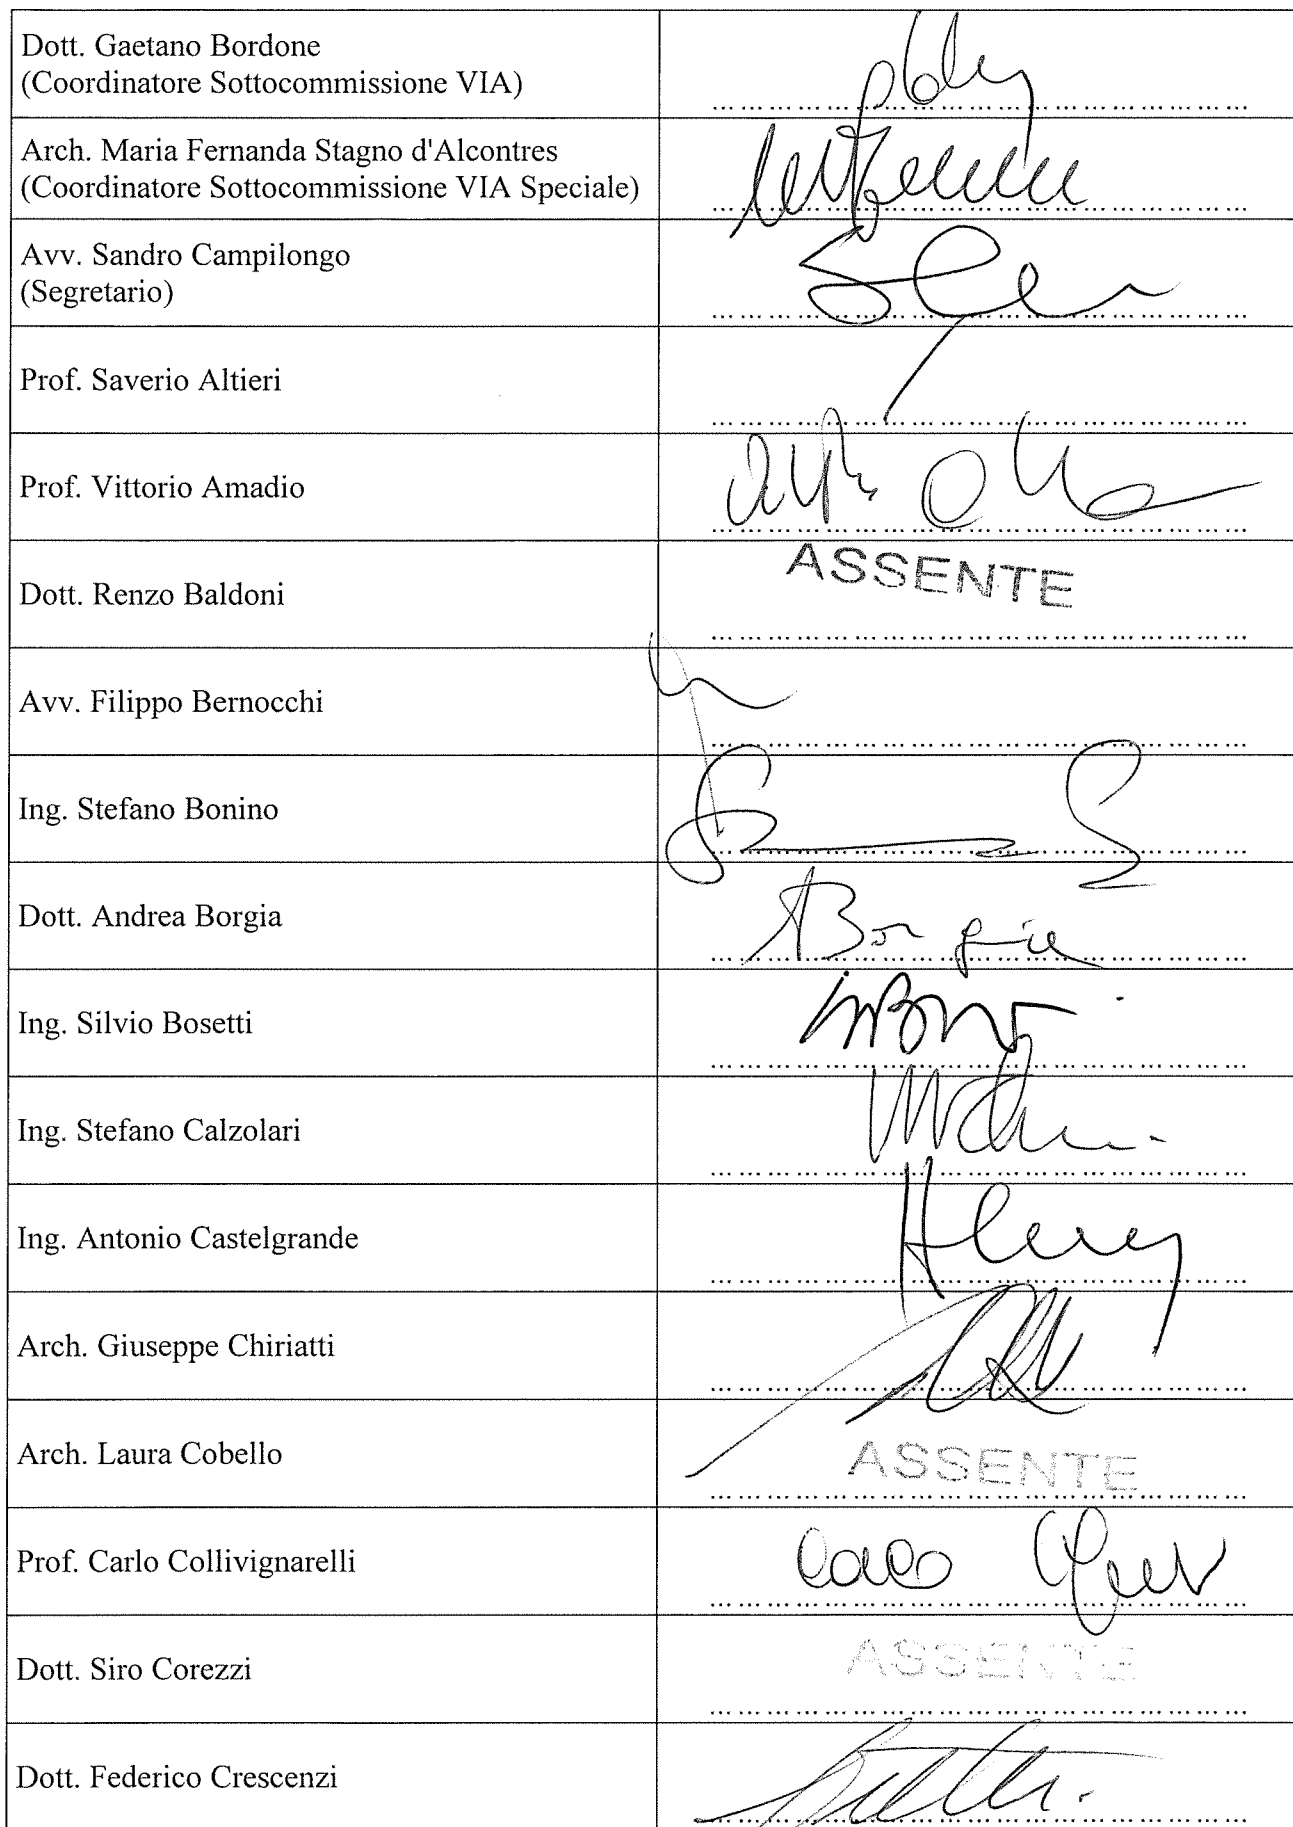 Dott. Gaetano Bordone
(Coordinatore Sottocommissione VIA)
Arch. Maria Fernanda Stagno d'Alcontres
(Coordinatore Sottocommissione VIA Speciale)
Avv. Sandro Campilongo
(Segretario)
Prof. Saverio Altieri
Prof. Vittorio Amadio
Dott. Renzo Baldoni
ASSENTE
Avv. Filippo Bernocchi
Ing. Stefano Bonino
Dott. Andrea Borgia
Borgia
Ing. Silvio Bosetti
Ing. Stefano Calzolari
Ing. Antonio Castelgrande
Arch. Giuseppe Chiriatti
Arch. Laura Cobello
ASSENTE
Prof. Carlo Collivignarelli
Dott. Siro Corezzi
ASSENTE
Dott. Federico Crescenzi